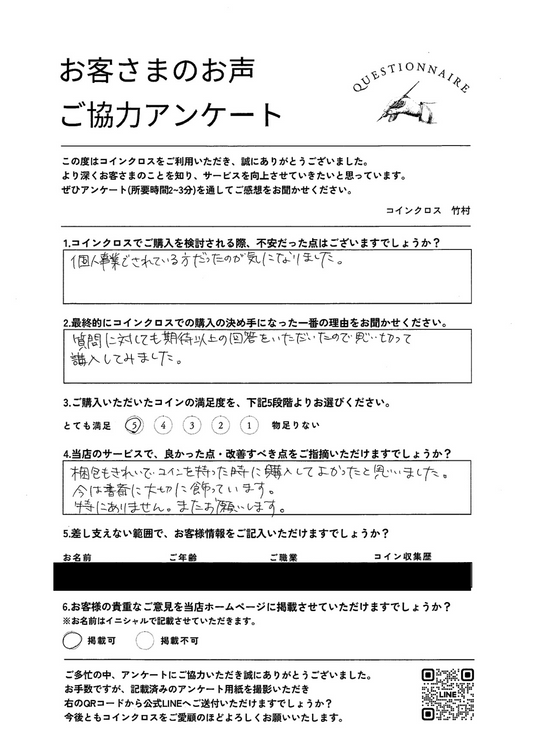 お客さまのお声
ご協力アンケート
QUESTIONNAIRE
この度はコインクロスをご利用いただき、誠にありがとうございました。
より深くお客さまのことを知り、サービスを向上させていきたいと思っています。
ぜひアンケート(所要時間2~3分)を通してご感想をお聞かせください。
コインクロス 竹村
1.コインクロスでご購入を検討される際、不安だった点はございますでしょうか?
個人事業でされている方だったのが気になりました。
2.最終的にコインクロスでの購入の決め手になった一番の理由をお聞かせください。
質問に対しても期待以上の回答をいただいたので思い切って
購入してみました。
3.ご購入いただいたコインの満足度を、下記5段階よりお選びください。
とても満足 5 4 3 2 1 物足りない
4.当店のサービスで、良かった点・改善すべき点をご指摘いただけますでしょうか?
梱包もきれいで コインを持った時に購入してよかったと思いました。
今は書斎に大切に飾っています。
特にありません。またお願いします。
5.差し支えない範囲で、お客様情報をご記入いただけますでしょうか?
お名前 ご年齢 ご職業 コイン収集歴
6.お客様の貴重なご意見を当店ホームページに掲載させていただけますでしょうか?
※お名前はイニシャルで記載させていただきます。
掲載可 掲載不可
ご多忙の中、アンケートにご協力いただき誠にありがとうございました。
お手数ですが、記載済みのアンケート用紙を撮影いただき
右のQRコードから公式LINEへご送付いただけますでしょうか?
今後ともコインクロスをご愛顧のほどよろしくお願いいたします。
LINE